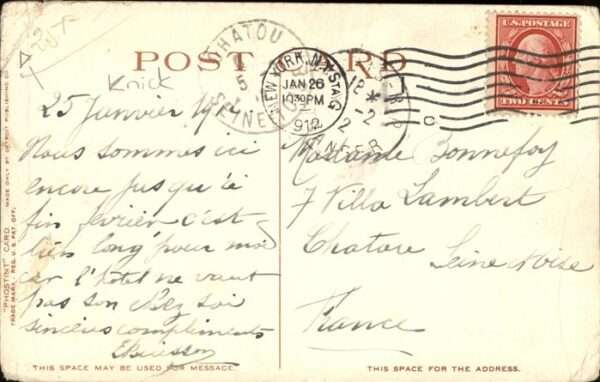 POST CARD
U.S. POSTAGE
TWO CENTS
CHATOU
SEINE
NEW YORK, N.Y. STA. G
JAN 26
10 30 PM
1912
Knick
25 Janvier 1912
Nous sommes ici
encore jusqu'à
fin février c'est
bien long pour moi
car l'hôtel ne vaut
pas son
sincères compliments
Madame Bonnefoy
7 Villa Lambert
Chatou
Seine & Oise
France
"PHOSTINT" CARD MADE ONLY BY DETROIT PUBLISHING CO.
TRADE MARK, REG. U.S. PAT. OFF.
THIS SPACE MAY BE USED FOR MESSAGE.
THIS SPACE FOR THE ADDRESS.